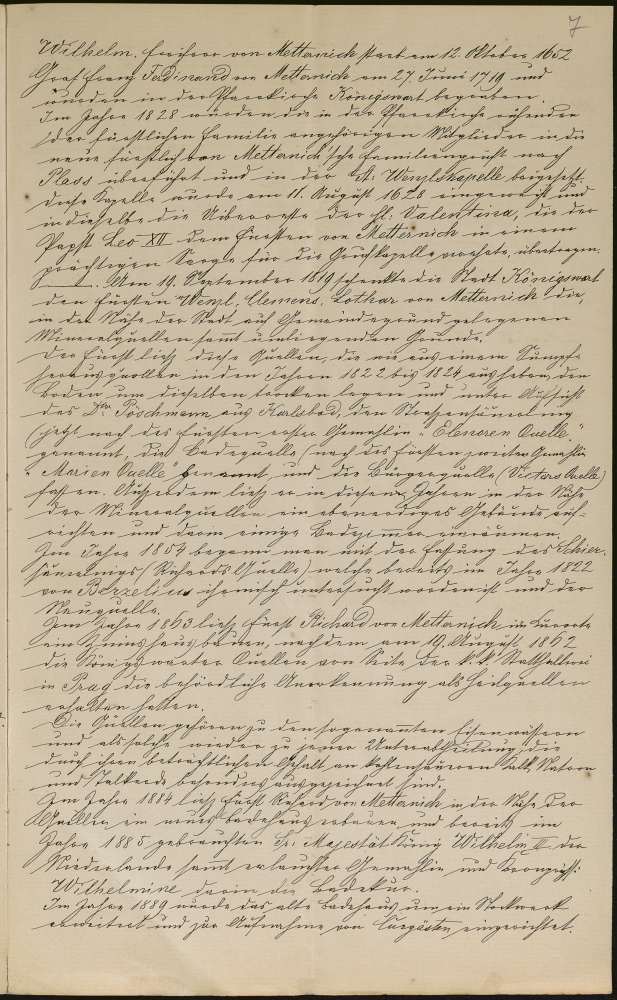 7
Wilhelm, Freiherr von Metternich starb am 12. Oktober 1652
Graf Franz Ferdinand von Metternich am 27. Juni 1719 und
wurden in der Pfarrkirche Königswart begraben.
Im Jahre 1828 wurden die in der Pfarrkirche ruhenden
der fürstlichen Familie angehörigen Mitglieder in die
neue fürstlich von Metternich'sche Familiengruft nach
Plass überführt und in der St. Wenzlskapelle beigesetzt.
Diese Kapelle wurde am 11. August 1828 eingeweiht und
in dieselbe die Überreste der hl. Valentina, die der
Papst Leo XII dem Fürsten von Metternich in einem
prächtigen Sarge für die Gruftkapelle verehrte, übertragen.
Am 19. September 1819 schenkte die Stadt Königswart
den Fürsten Wenzl, Clemens, Lothar von Metternich die,
in der Nähe der Stadt auf Gemeindegrund gelegenen
Mineralquellen samt umliegenden Grunde.
Der Fürst ließ diese Quellen, die wie aus einem Sumpfe
herausquollen in den Jahren 1822 bis 1824 ausheben, den
Boden um dieselben trocken legen und unter Aufsicht
des Dr. Pöschmann aus Karlsbad, den Strassensäuerling
(jetzt nach des Fürsten erster Gemahlin "Eleneren Quelle,"
genannt, die Badequelle (nach des Fürsten zweiten Gemahlin
"Marien Quelle" genannt, und die Bürgerquelle (Victors Quelle)
fassen. Außerdem ließ er in diesen Jahren in der Nähe
der Mineralquellen ein ebenerdiges Gebäude auf-
richten und darin einige Badezimmer einräumen.
Im Jahre 1854 begann man mit der Fassung des Schier-
säuerlings (Richards Quelle) welche bereits im Jahre 1822
von Berzelius chemisch untersucht worden ist und der
Neuquelle.
Im Jahre 1863 ließ Fürst Richard von Metternich im Kurorte
ein Zinshaus bauen, nachdem am 19. August 1862
die Königswarter Quellen von Seite der k. k. Statthalterei
in Prag die behördliche Anerkennung als Heilquellen
erhalten hatten.
Die Quellen gehören zu den sogenannten Eisenwässern
und als solche wieder zu jener Unterabtheilung, die
durch ihren beträchtlichen Gehalt an kohlensäueren Kalk, Natron
und Talkerde besonders ausgezeichnet sind.
Im Jahre 1884 ließ Fürst Richard von Metternich in der Nähe der
Quellen ein neues Badehaus erbauen und bereits im
Jahre 1885 gebrauchten Sr. Majestät König Wilhelm III. der
Niederlande samt erlauchter Gemahlin und Kronprinzß:
Wilhelmine darin die Badekur.
Im Jahre 1889 wurde das alte Badehaus um ein Stockwerk
erweitert und zur Aufnahme von Curgästen eingerichtet.